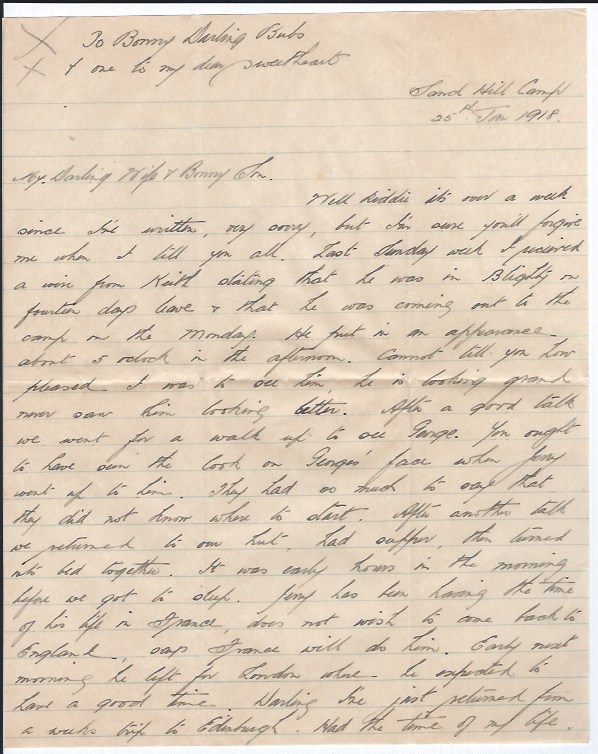 X To Bonny Darling Bubs
X & one to my dear sweetheart
Sand Hill Camp
25st Jan 1918.
My Darling Wife & Bonny Son.
Well kiddie it's over a week
since I've written, very sorry, but I'm sure you'll forgive
me when I tell you all. Last Sunday week I received
a wire from Keith stating that he was in Blighty on
fourteen days leave & that he was coming out to the
camp on the Monday. He put in an appearance
about 5 oclock in the afternoon. Cannot tell you how
pleased I was to see him, he is looking grand
never saw him looking better. After a good talk
we went for a walk up to see George. You ought
to have seen the look on George's face when Jerry
went up to him. They had so much to say that
they did not know where to start. After another talk
we returned to our hut, had supper, then turned
into bed together. It was early hours in the morning
before we got to sleep. Jerry has been having the time
of his life in France, does not wish to come back to
England, says France will do him. Early next
morning he left for London where he expected to
have a good time. Darling I've just returned from
a weeks trip to Edinburgh. Had the time of my life.